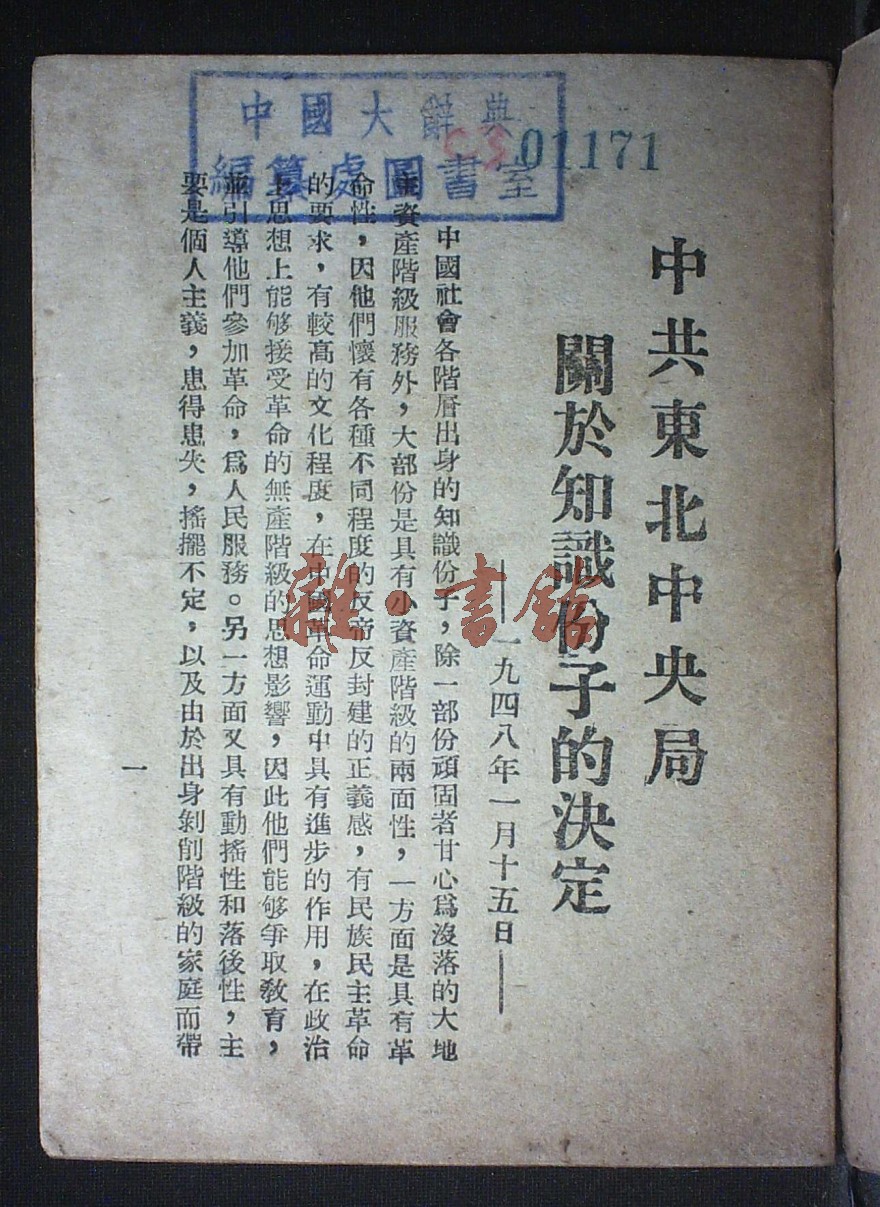 中國大辭典
編纂處圖書室
01171
中共東北中央局
關於知識份子的決定
——一九四八年一月十五日——
中國社會各階層出身的知識份子，除一部份頑固者甘心爲沒落的大地
主資產階級服務外，大部份是具有小資產階級的兩面性，一方面是具有革
命性，因他們懷有各種不同程度的反帝反封建的正義感，有民族民主革命
的要求，有較高的文化程度，在中國革命運動中具有進步的作用，在政治
上思想上能够接受革命的無產階級的思想影響，因此他們能够爭取敎育，
並引導他們參加革命，爲人民服務。另一方面又具有動搖性和落後性，主
要是個人主義，患得患失，搖擺不定，以及由於出身剝削階級的家庭而帶
一
雜·書館